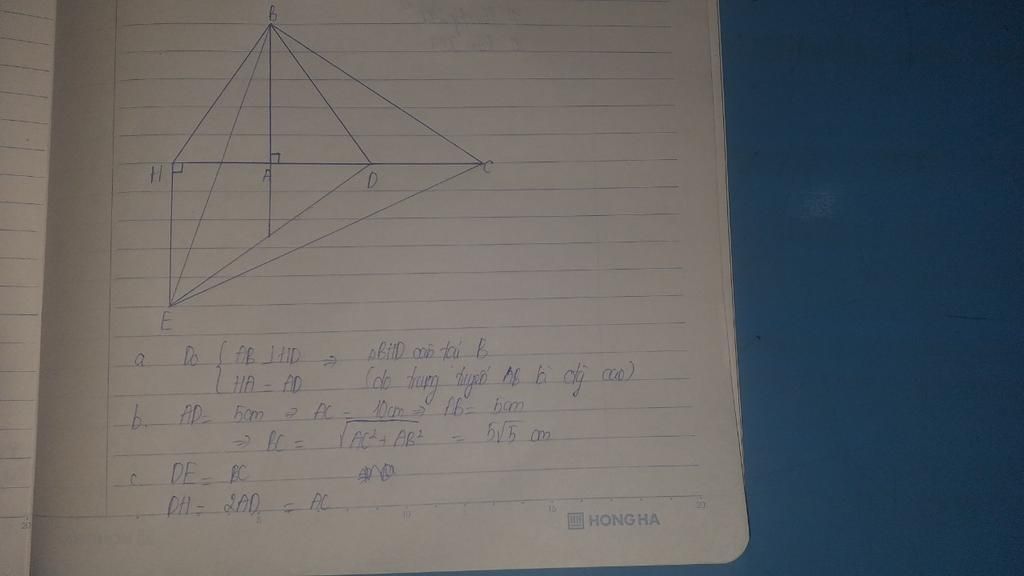 B
H A D C
E
a Do { AB ⊥ HD ⇒ ΔBHD cân tại B
HA = AD (do trung tuyến AB là đg cao)
b. AD = 5cm ⇒ AC = 10cm ⇒ AB = 5cm
⇒ BC = √AC² + AB² = 5√5 cm
c. DE = BC
DH = 2AD = AC
5 10 15 20
HONG HA
20